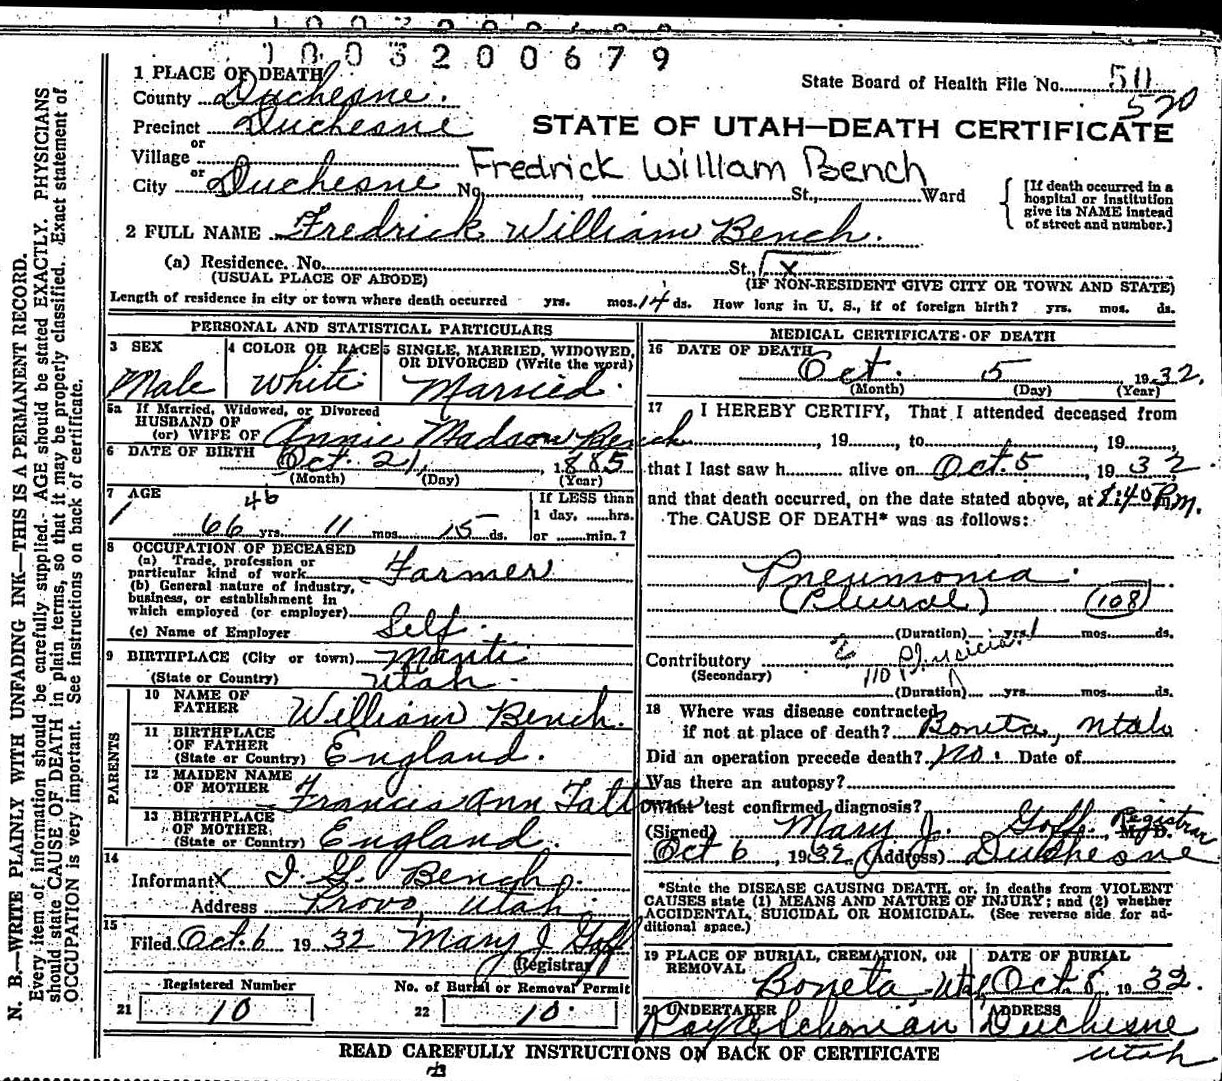 1003200679
1 PLACE OF DEATH
State Board of Health File No. 511
570
County Duchesne.
Precinct Duchesne
STATE OF UTAH—DEATH CERTIFICATE
or
Village
Fredrick William Bench
or
City Duchesne No. , St., Ward
[If death occurred in a
hospital or institution
give its NAME instead
of street and number.]
2 FULL NAME Fredrick William Bench.
(a) Residence. No. St., x
(USUAL PLACE OF ABODE) (IF NON-RESIDENT GIVE CITY OR TOWN AND STATE)
Length of residence in city or town where death occurred yrs. mos. 14 ds. How long in U. S., if of foreign birth? yrs. mos. ds.
PERSONAL AND STATISTICAL PARTICULARS
3 SEX 4 COLOR OR RACE 5 SINGLE, MARRIED, WIDOWED,
OR DIVORCED (Write the word)
Male White Married.
5a If Married, Widowed, or Divorced
HUSBAND OF
(or) WIFE OF Annie Madson Bench
6 DATE OF BIRTH Oct. 21, 1885
(Month) (Day) (Year)
7 AGE 46 If LESS than
1 day, ......hrs.
66 yrs. 11 mos. 15 ds. or ......min.?
8 OCCUPATION OF DECEASED
(a) Trade, profession or
particular kind of work Farmer
(b) General nature of industry,
business, or establishment in
which employed (or employer)
(c) Name of Employer Self.
9 BIRTHPLACE (City or town) Manti
(State or Country) Utah.
PARENTS
10 NAME OF
FATHER William Bench.
11 BIRTHPLACE
OF FATHER
(State or Country) England.
12 MAIDEN NAME
OF MOTHER Francis Ann
13 BIRTHPLACE
OF MOTHER
(State or Country) England.
14
Informant X Bench.
Address Provo, Utah
15
Filed Oct. 6 1932 Mary J Goff
(Registrar)
Registered Number No. of Burial or Removal Permit
21 10 22 10.
MEDICAL CERTIFICATE OF DEATH
16 DATE OF DEATH
Oct. 5 1932.
(Month) (Day) (Year)
17 I HEREBY CERTIFY, That I attended deceased from
, 19 , to , 19 ,
that I last saw h alive on Oct. 5 , 1932
and that death occurred, on the date stated above, at 1:40 P.m.
The CAUSE OF DEATH* was as follows:
Pneumonia.
(Plural) (108)
(Duration) yrs. mos. ds.
Contributory
(Secondary) 110
(Duration) yrs. mos. ds.
18 Where was disease contracted
if not at place of death? Boneta, Utah
Did an operation precede death? no. Date of
Was there an autopsy?
What test confirmed diagnosis?
(Signed) Mary J. Goff, Registrar M. D.
Oct 6, 1932 (Address) Duchesne
*State the DISEASE CAUSING DEATH, or, in deaths from VIOLENT
CAUSES state (1) MEANS AND NATURE OF INJURY; and (2) whether
ACCIDENTAL, SUICIDAL OR HOMICIDAL. (See reverse side for ad-
ditional space.)
19 PLACE OF BURIAL, CREMATION, OR
REMOVAL
Boneta, Utah
DATE OF BURIAL
Oct. 8, 1932.
20 UNDERTAKER ADDRESS
Duchesne
Utah
READ CAREFULLY INSTRUCTIONS ON BACK OF CERTIFICATE
N. B.—WRITE PLAINLY WITH UNFADING INK—THIS IS A PERMANENT RECORD.
Every item of information should be carefully supplied. AGE should be stated EXACTLY. PHYSICIANS
should state CAUSE OF DEATH in plain terms, so that it may be properly classified. Exact statement of
OCCUPATION is very important. See instructions on back of certificate.